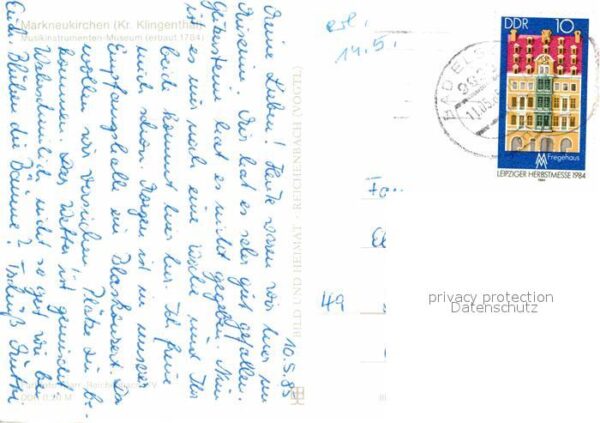 Markneukirchen (Kr. Klingenthal)
Musikinstrumenten-Museum (erbaut 1784)
10.5.85
Meine Lieben! Heute waren wir hier im
Museum. Mir hat es sehr gut gefallen.
Gitarrensaiten hat es nicht gegeben. Nun
ist es nur noch eine Woche und Ihr
beide kommt hier her. Ich freu
mich schon. Morgen ist in unserer
Empfangshalle ein Blaskonzert. Da
wollen wir versuchen, Plätze zu be-
kommen. Das Wetter ist gemischt.
Wahrscheinlich nicht so gut wie bei
Euch. Blühen die Bäume? – Gruß
BILD UND HEIMAT · REICHENBACH (VOGTL)
erl.
14.5.
DDR 10
Fregehaus
LEIPZIGER HERBSTMESSE 1984
BAD ELST
11.05.85
49
privacy protection
Datenschutz